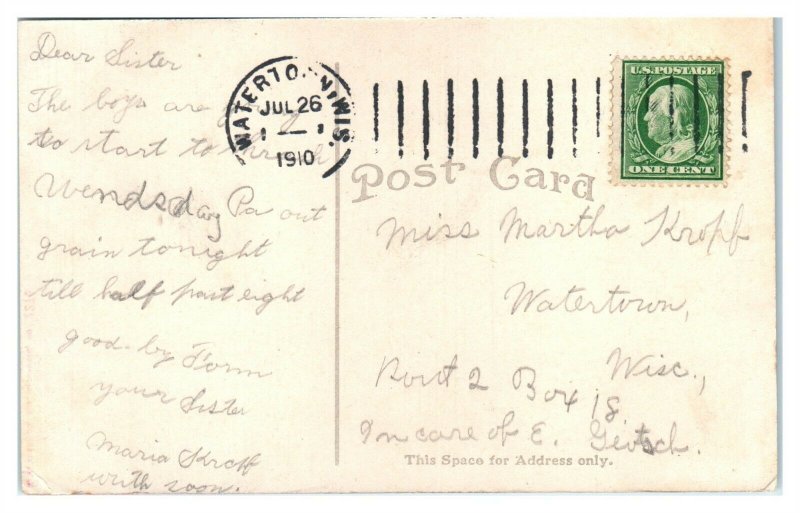 Dear Sister
The boys are
to start to
Wendsday Pa out
grain tonight
till half past eight
good-by Form
your Sister
Maria Kropf
writh soon.
WATERTOWN WIS.
JUL 26
1910
U.S. POSTAGE
ONE CENT
Post Card
Miss Martha Kropf
Watertown,
Wisc.,
Rout 2 Box 18
In care of E.
This Space for Address only.